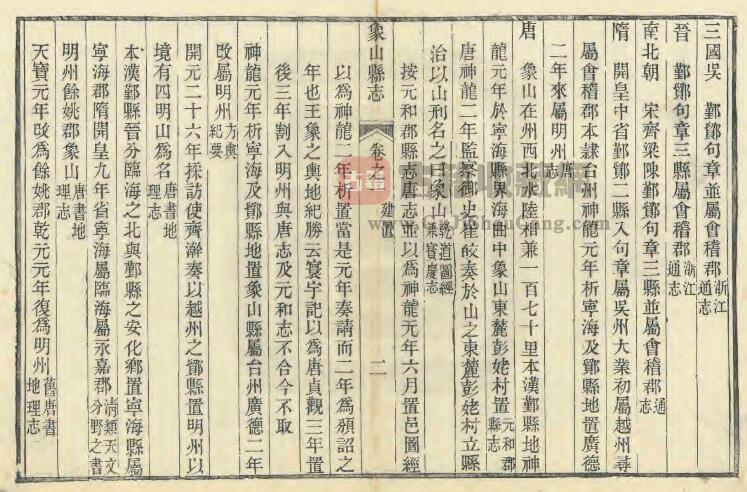 三國吳　鄞鄮句章並屬會稽郡浙江通志
晉　鄞鄮句章三縣屬會稽郡浙江通志
南北朝　宋齊梁陳鄞鄮句章三縣並屬會稽郡通志
隋　開皇中省鄞鄮二縣入句章屬吳州大業初屬越州尋
屬會稽郡本隸台州神龍元年析寧海及鄮縣地置廣德
二年來屬明州唐志
唐　象山在州西北水陸相兼一百七十里本漢鄞縣地神
龍元年於寧海縣界海曲中象山東麓彭姥村置元和郡縣志
唐神龍二年監察御史崔皎奏於山之東麓彭姥村立縣
治以山形名之曰象山乾道圖經兼寶慶志
按元和郡縣志唐志並以爲神龍元年六月置邑圖經
象山縣志　卷之　建置　二
以爲神龍二年析置當是元年奏請而二年爲頒詔之
年也王象之輿地紀勝云寰宇記以爲唐貞觀三年置
後三年割入明州與唐志及元和志不合今不取
神龍元年析寧海及鄮縣地置象山縣屬台州廣德二年
改屬明州方輿紀要
開元二十六年採訪使齊澣奏以越州之鄮縣置明州以
境有四明山爲名唐書地理志
本漢鄞縣晉分臨海之北與鄞縣之安化鄉置寧海縣屬
寧海郡隋開皇九年省寧海屬臨海屬永嘉郡清類天文分野之書
明州餘姚郡象山唐書地理志
天寶元年改爲餘姚郡乾元元年復爲明州舊唐書地理志